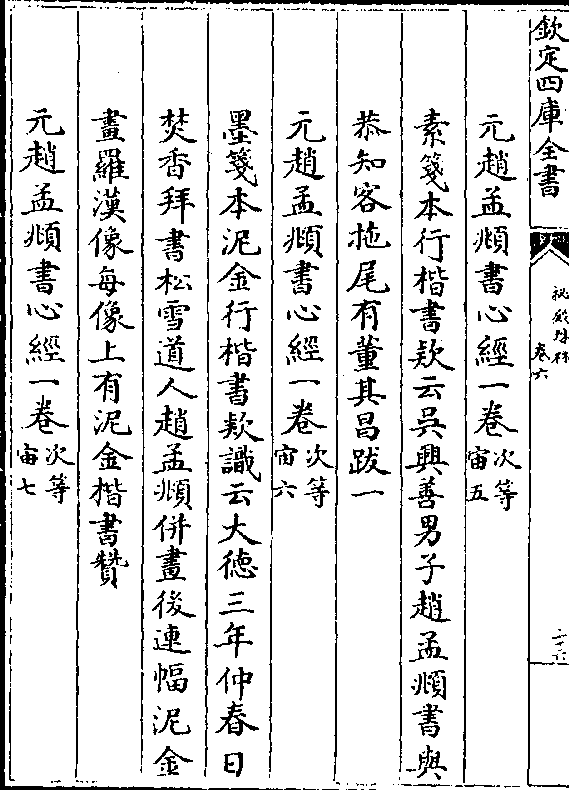 欽定四庫全書
秘殿珠林
卷六
元趙孟頫書心經一卷次等宙五
素箋本行楷書欵云吳興善男子趙孟頫書與
恭知客拖尾有董其昌跋一
元趙孟頫書心經一卷次等宙六
墨箋本泥金行楷書欵識云大德三年仲春日
焚香拜書松雪道人趙孟頫併畫後連幅泥金
畫羅漢像每像上有泥金楷書贊
元趙孟頫書心經一卷次等宙七